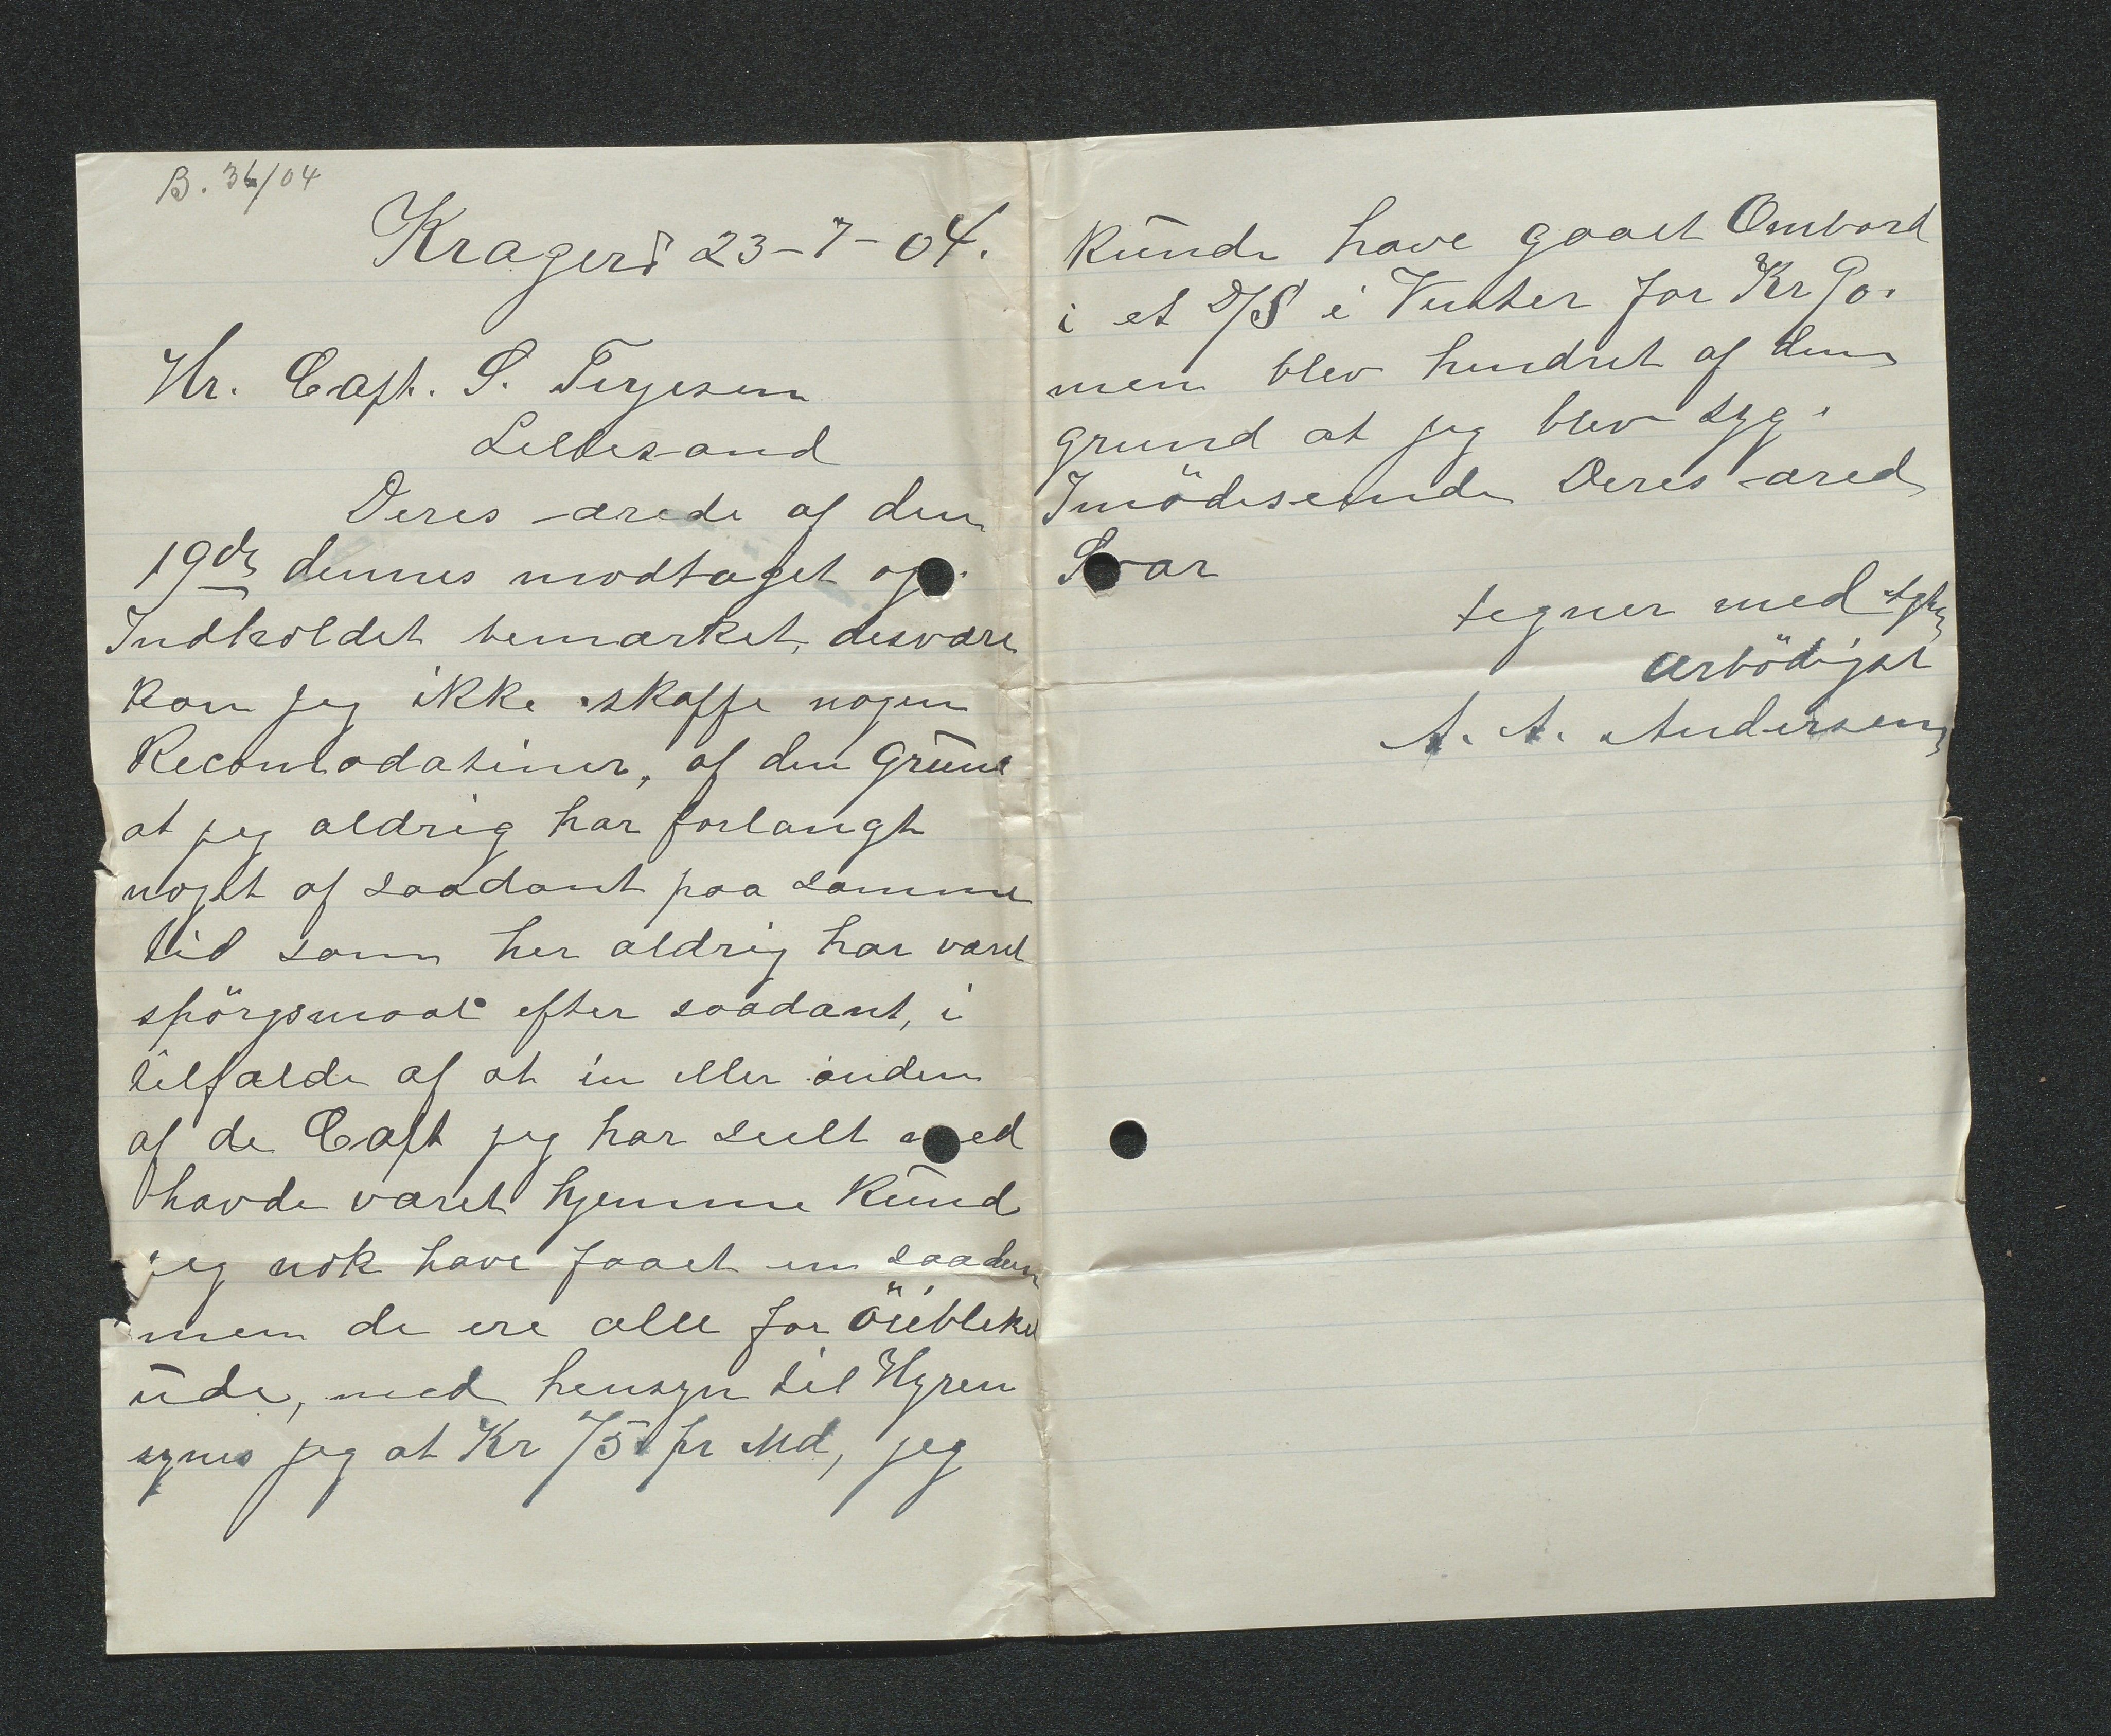 B. 36/04
Kragerö 23-7-04.
Hr. Capt. S. Terjesen
Lillesand
Deres ærede af den
19de dennes modtaget og
Indholdet bemærket, desvære
kan jeg ikke skaffe nogen
Recomodationer, af den Grund
at jeg aldrig har forlangt
noget af saadant paa samme
tid som her aldrig har været
spörgsmaal efter saadant, i
tilfælde af at en eller anden
af de Capt jeg har seilt med
havde været hjemme kund
jeg nok have faaet en saadan
men de ere alle for öieblikel
ude, med hensyn til Hyren
synes jeg at Kr 75 pr Md, jeg
kunde have gaaet Ombord
i et D/S i Vinter for Kr 90.
men blev hindret af den
grund at jeg blev syg.
Imödeseende Deres ærede
Svar
tegner med
Ærbödigst
A. A. Andersen